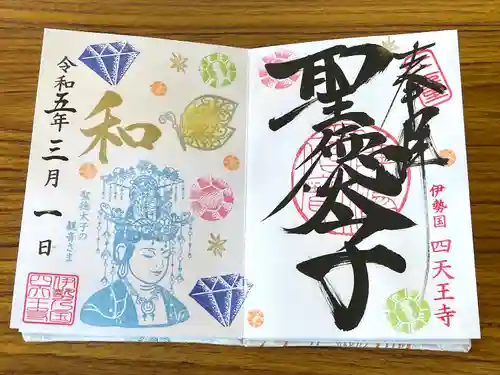 奉拝
聖徳太子
伊勢国 四天王寺
和
聖徳太子の
観音さま
令和五年三月一日
伊勢国
四天王寺